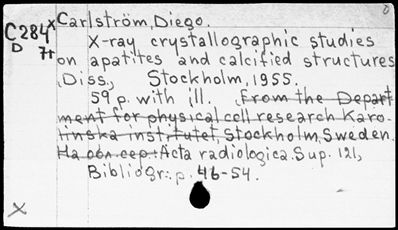 C284 x Carlström, Diego.
D 7+ X-ray crystallographic studies
on apatites and calcified structures
Diss., Stockholm, 1955.
59 p. with ill. From the Depart
ment for physical cell research Karo-
linska institutet, Stockholm, Sweden.
На обл. сер.: Acta radiologica. Sup. 121,
Bibliogr.: p. 46-54.
x